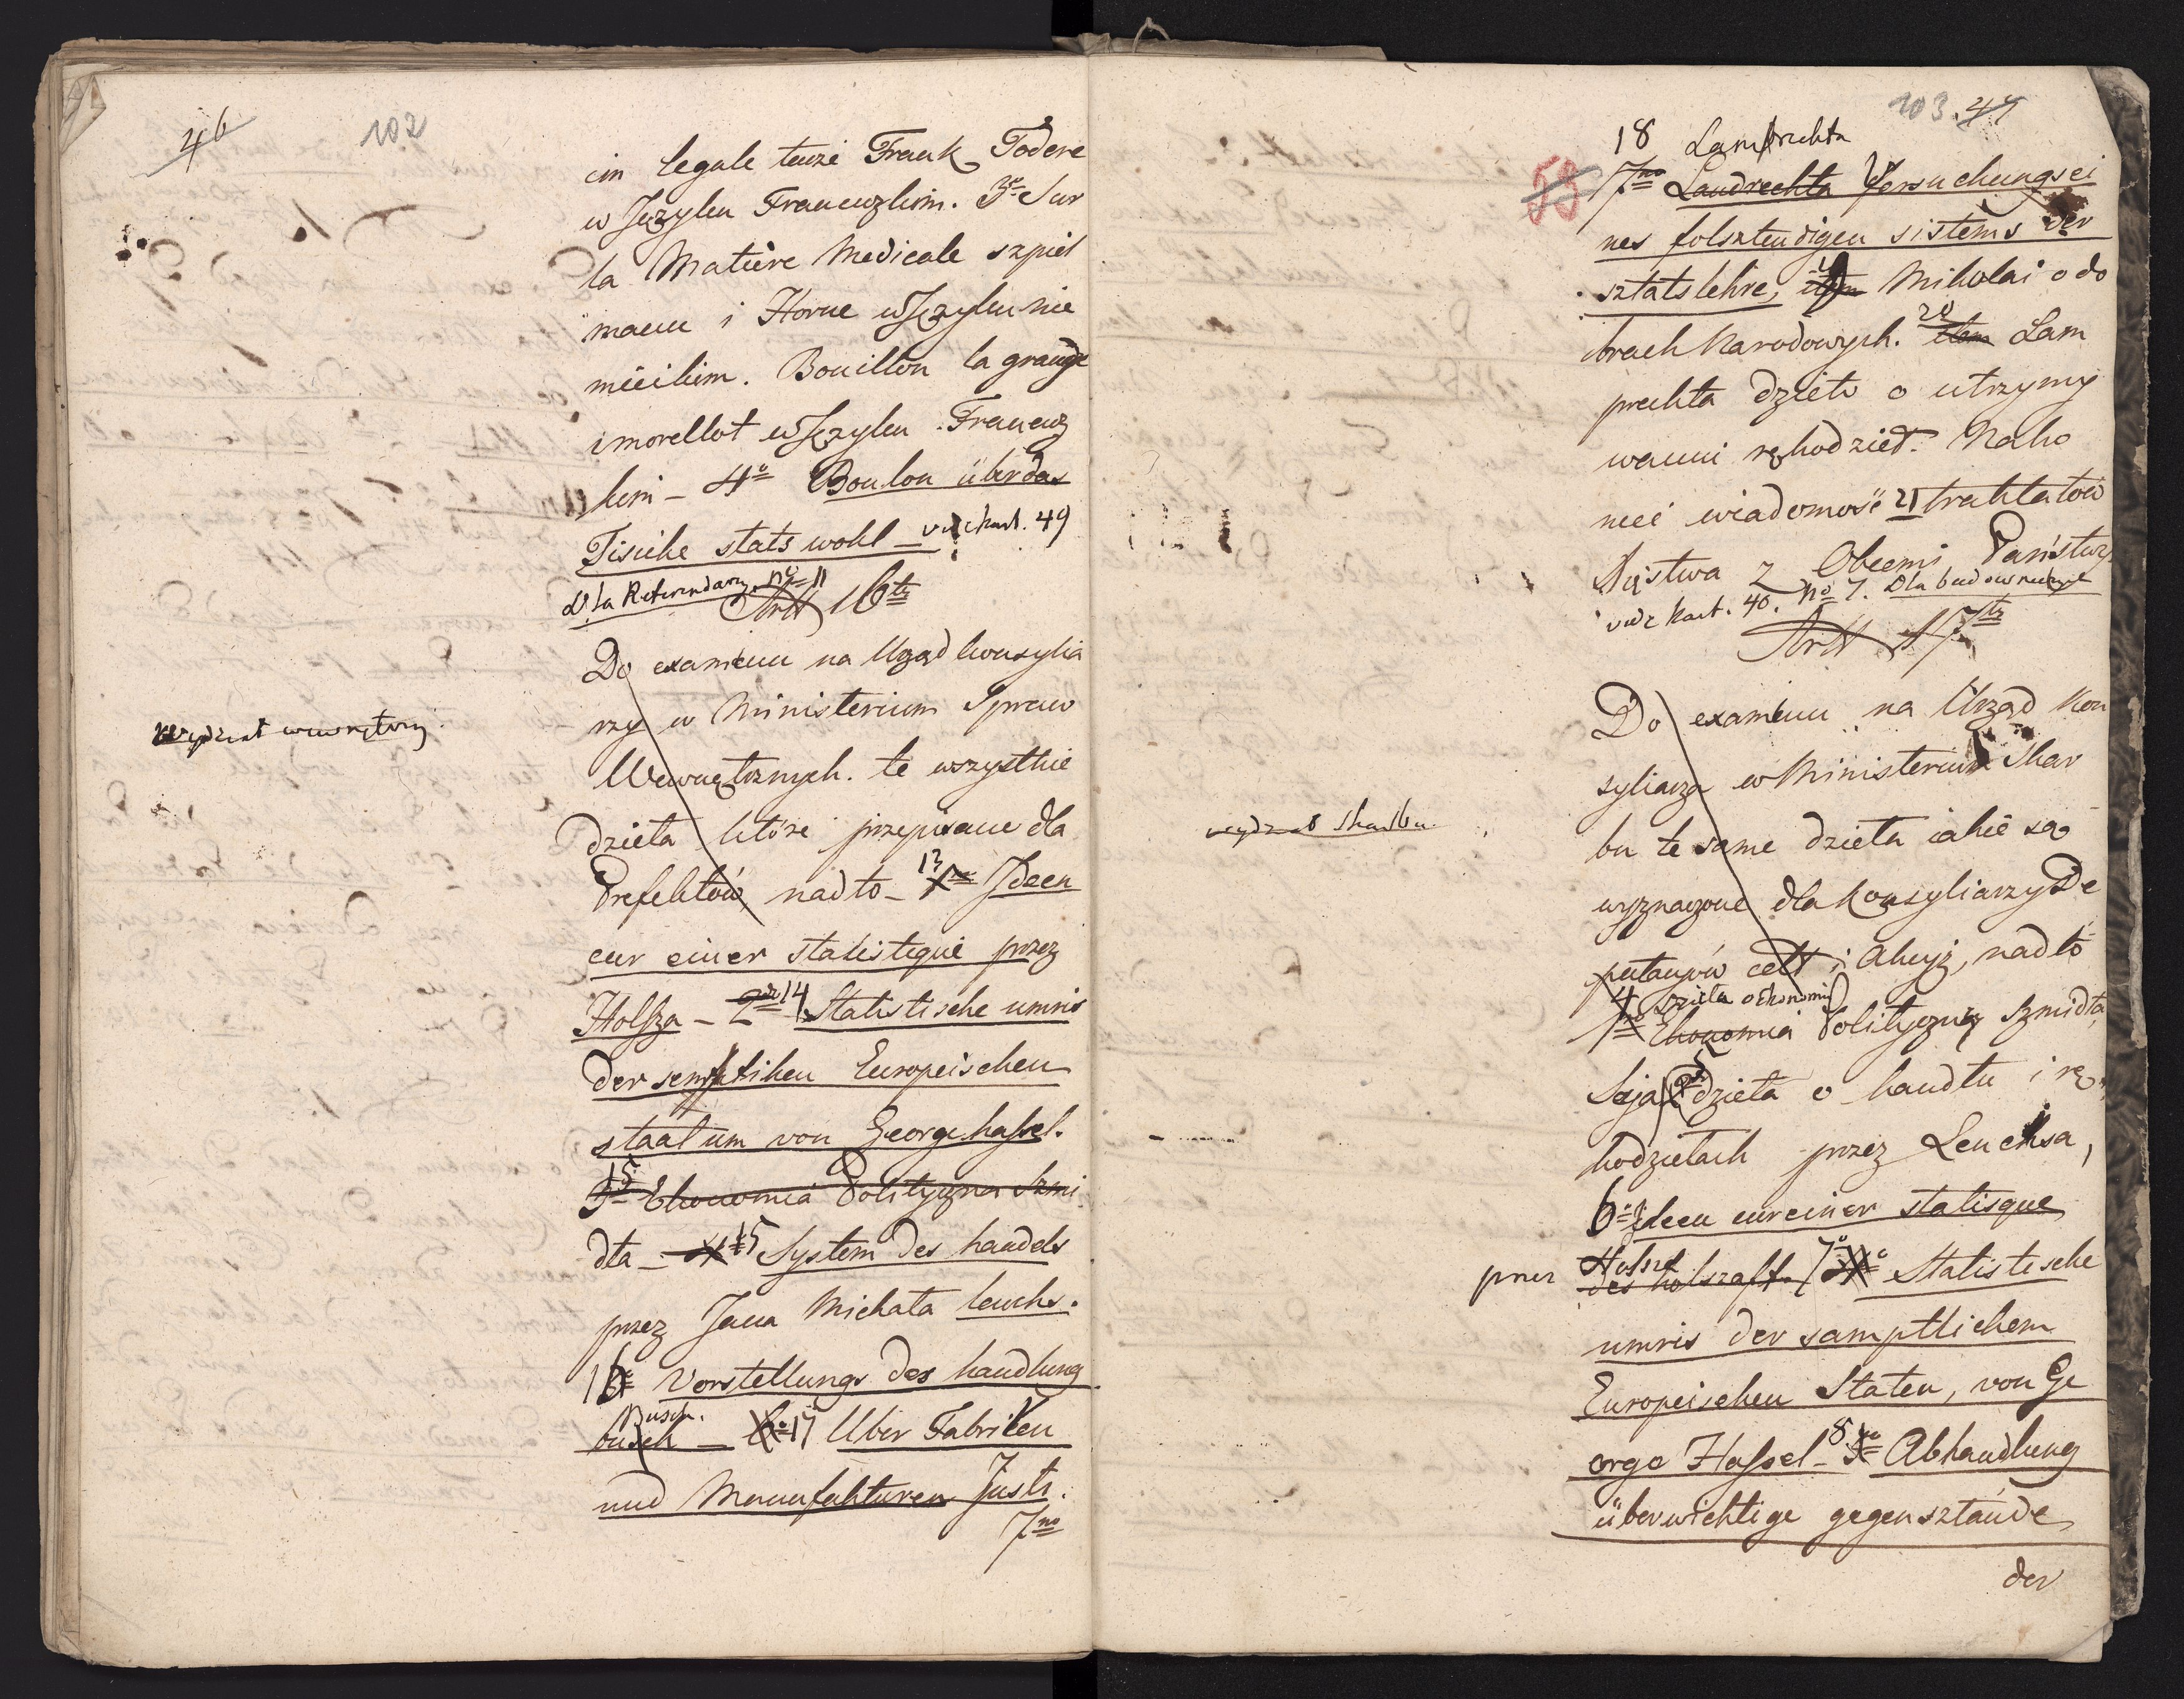 46 102
cin legale tenże Frank Todere
w Języku Francuzkim. 3o Sur
la Matiere Medicale szpiel
mann i Horne w Języku nie
mieckim. Bouillon la grange
i morellot w Języku Francuz
kim - 4o Boulon über das
Tisiche stats wohl - vide kart. 49
dla Referendarzy no 11
Artt 16ty
Do examenu na Urząd konsylia
rzy w Ministerium Spraw
Wydział wewnętrzny.
Wewnętrznych. te wszystkie
dzieła które przepisane dla
Prefektów nadto - 13 Ideen
cur einer statistique przez
Holsza - 2do 14 Statistische umris
der semptliken Europeischen
staatum von George hassel.
15 3o Ekonomia Polityczna Szmi
dta - 15 System des handels
przez Jana Michała leuchs.
16o Vorstellungs des handlung
Busch.
busch - 6o 17 Uber Fabriken
und Manufakturen Justi.
7mo
103. 47
18 Lamprechta
53 7mo Landrechta Versuchungs ei
nes folsztendigen sistems der
sztatslehre, item Mikolai o do
brach Narodowych. 20 item Lam
prechta dzieło o utrzymy
waniu rękodzieł. Nako
niec wiadomość 21 traktatów
Xięstwa z Obcemi Państwy
vide kart. 40. No 7. Dla budownictwa
Artt 17ty
Do examenu na Urząd Kon
syliarza w Ministerium Skar
wydział Skarbu.
bu te same dzieła iakie są
wyznaczone dla Konsyliarzy De
putacyów cełł i Akcyz, nadto
4 dzieła o Ekonomii
1mo Ekonomia Polityczną Szmidta,
Seja 5 2do dzieła o handlu i rę
kodziełach przez Leuchsa,
6o Ideen cur einer statisque
przez Holsza des holszaft. 7o Statistische
umris der samptlichem
Europeischen Staten, von Ge
orge Hassel - 8 Abhandlung
über wichtige gegensztände
der